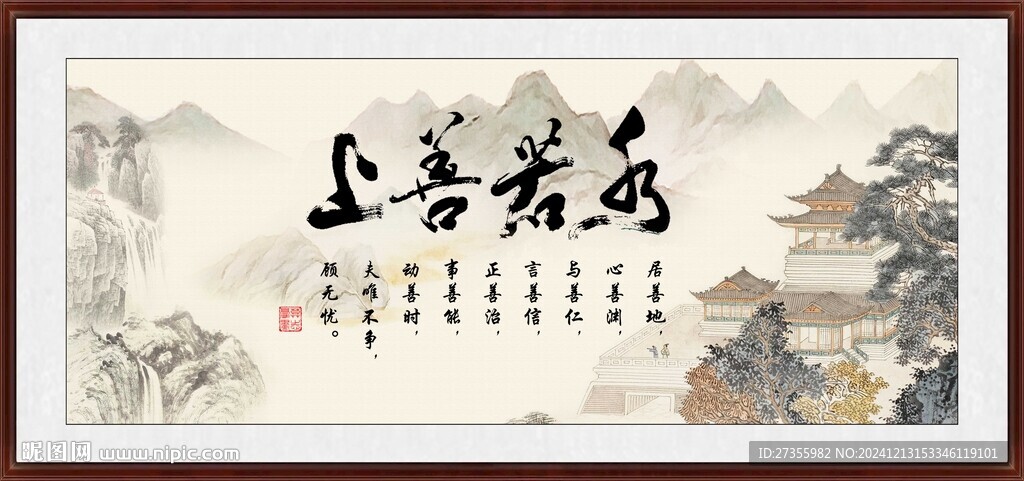 上善若水
居善地，
心善渊，
与善仁，
言善信，
正善治，
事善能，
动善时，
夫唯不争，
顾无忧。
昵图网 www.nipic.com
ID:27355982 NO:20241213153346119101